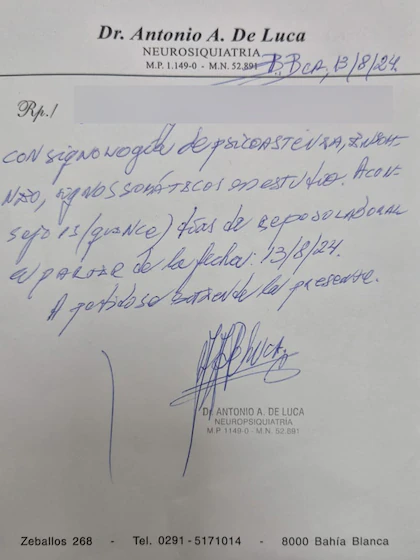 Dr. Antonio A. De Luca
NEUROSIQUIATRIA
M.P. 1.149-0 - M.N. 52.891
B BCA, 13/8/24.
Rp./
CON signologia de psicoastenia, INSOM-
NIO, signos somáticos en estudio. ACON-
sejo 15 (quince) días de REPOSO LABORAL
a partir de la fecha: 13/8/24.
A pedido se extiende la presente.
DR. ANTONIO A. DE LUCA
NEUROPSIQUIATRÍA
M.P 1149-0 - M.N. 52.891
Zeballos 268 - Tel. 0291-5171014 - 8000 Bahía Blanca